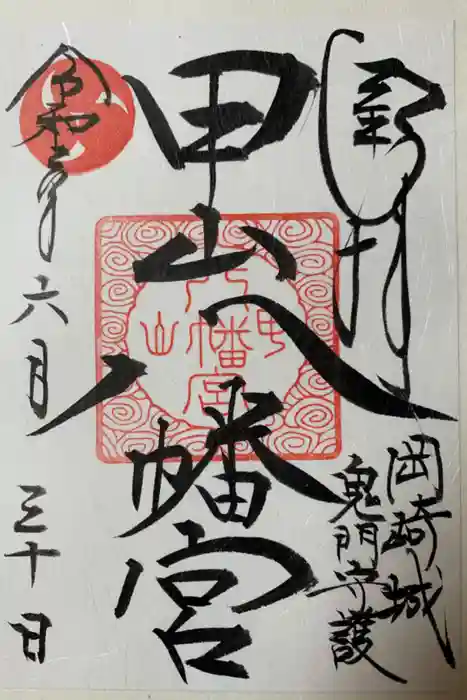 奉拝
岡崎城
鬼門守護
甲山八幡宮
甲山
八幡宮
令和三年
六月
三十日